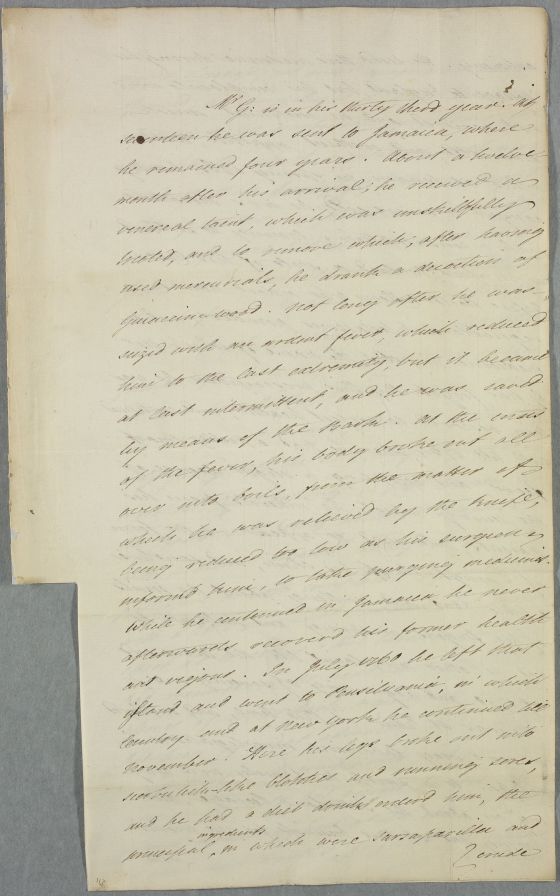 Mr G: is in his thirty third year. At
seventeen he was sent to Jamaica, where
he remained four years. About a twelve
month after his arrival, he received a
venereal taint, which was unskillfully
treated, and to remove which, after having
used mercurials, he drank a decoction of
Guiaccum wood. Not long after he was
seized with an ardent fever, which reduced
him to the last extremity, but it became
at last intermittent, and he was saved
by means of the Bark. At the crisis
of the fever, his body broke out all
over into boils, from the matter of
which he was relieved by the knife,
being reduced too low as his surgeon
informd him, to take purging medicines.
While he continued in Jamaica he never
afterwards recoverd his former health
and vigour. In July 1760 he left that
island and went to Pensilvania, in which
Country and at New York he continued till
November. Here his legs broke out into
scorbutick-like blotches and running sores,
and he had a diet drink orderd him, the
principal ingredients in which were sarsaparilla and
crude